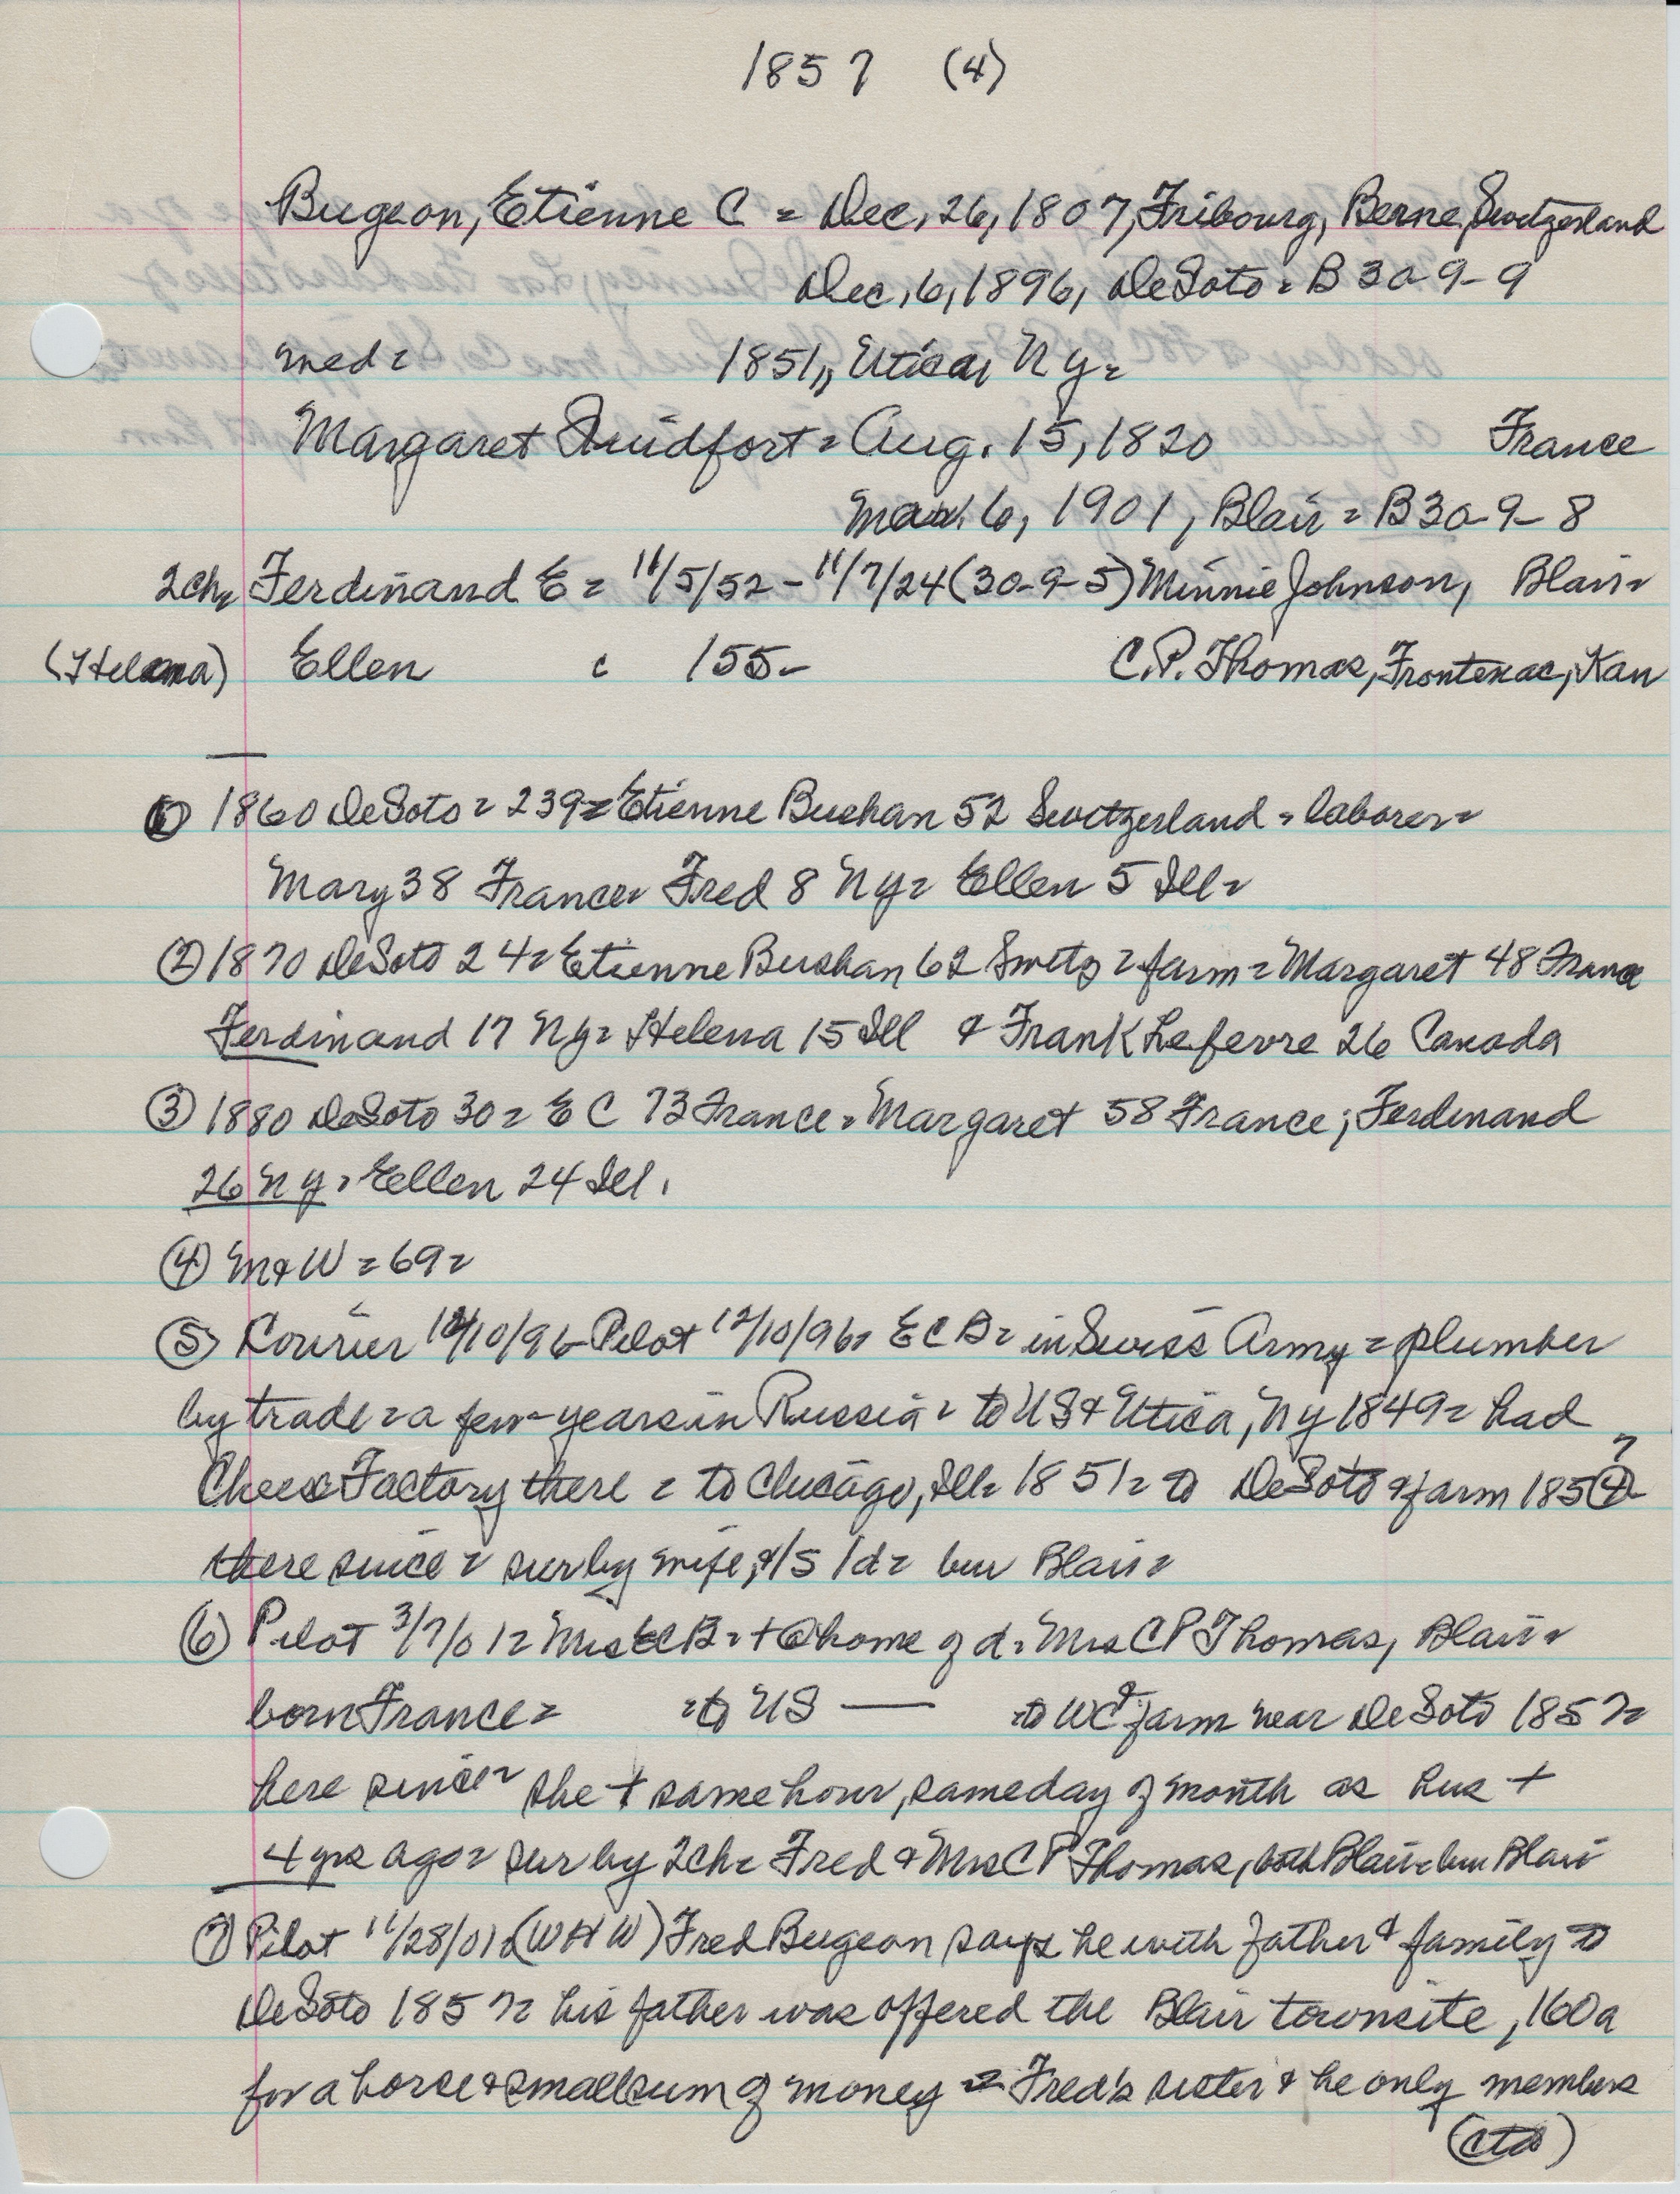 1857 (4)
Bugeon, Etienne C = Dec. 26, 1807, Fribourg, Berne, Switzerland
Dec. 6, 1896, DeSoto = B 30-9-9
med = 1851, Utica, N Y =
Margaret = Aug. 15, 1820 France
Mar. 6, 1901, Blair = B 30-9-8
2ch = Ferdinand E = 11/5/52 - 11/7/24 (30-9-5) Minnie Johnson, Blair =
(Helena) Ellen c 155- C.P. Thomas, Frontenac, Kan
① 1860 DeSoto = 239 = Etienne Bushan 52 Switzerland = laborer =
Mary 38 France = Fred 8 N Y = Ellen 5 Ill =
② 1870 DeSoto 24 = Etienne Bushan 62 Switz = farm = Margaret 48 France
Ferdinand 17 N Y = Helena 15 Ill & Frank Lefevre 26 Canada
③ 1880 DeSoto 30 = E C 73 France = Margaret 58 France; Ferdinand
26 N Y = Ellen 24 Ill.
④ M & W = 69 =
⑤ Courier 12/10/96 - Pilot 12/10/96 = E C B = in Swiss Army = plumber
by trade = a few years in Russia = to US & Utica, N Y 1849 = had
Cheese Factory there = to Chicago, Ill = 1851 = to DeSoto & farm 185④ 7
there since = sur by wife, & 1s 1d = bur Blair =
⑥ Pilot 3/7/01 = Mrs E C B = + @ home of d = Mrs C P Thomas, Blair =
born France = = to US — to WC & farm near DeSoto 1857 =
here since = she + same hour, same day of month as hus +
4 yrs ago = sur by 2ch = Fred & Mrs C P Thomas, both Blair = bur Blair
⑦ Pilot 11/28/01 = (W H W) Fred Bugeon says he with father & family to
DeSoto 1857 = his father was offered the Blair townsite, 160a
for a horse & small sum of money = Fred's sister & he only members
(ctd)